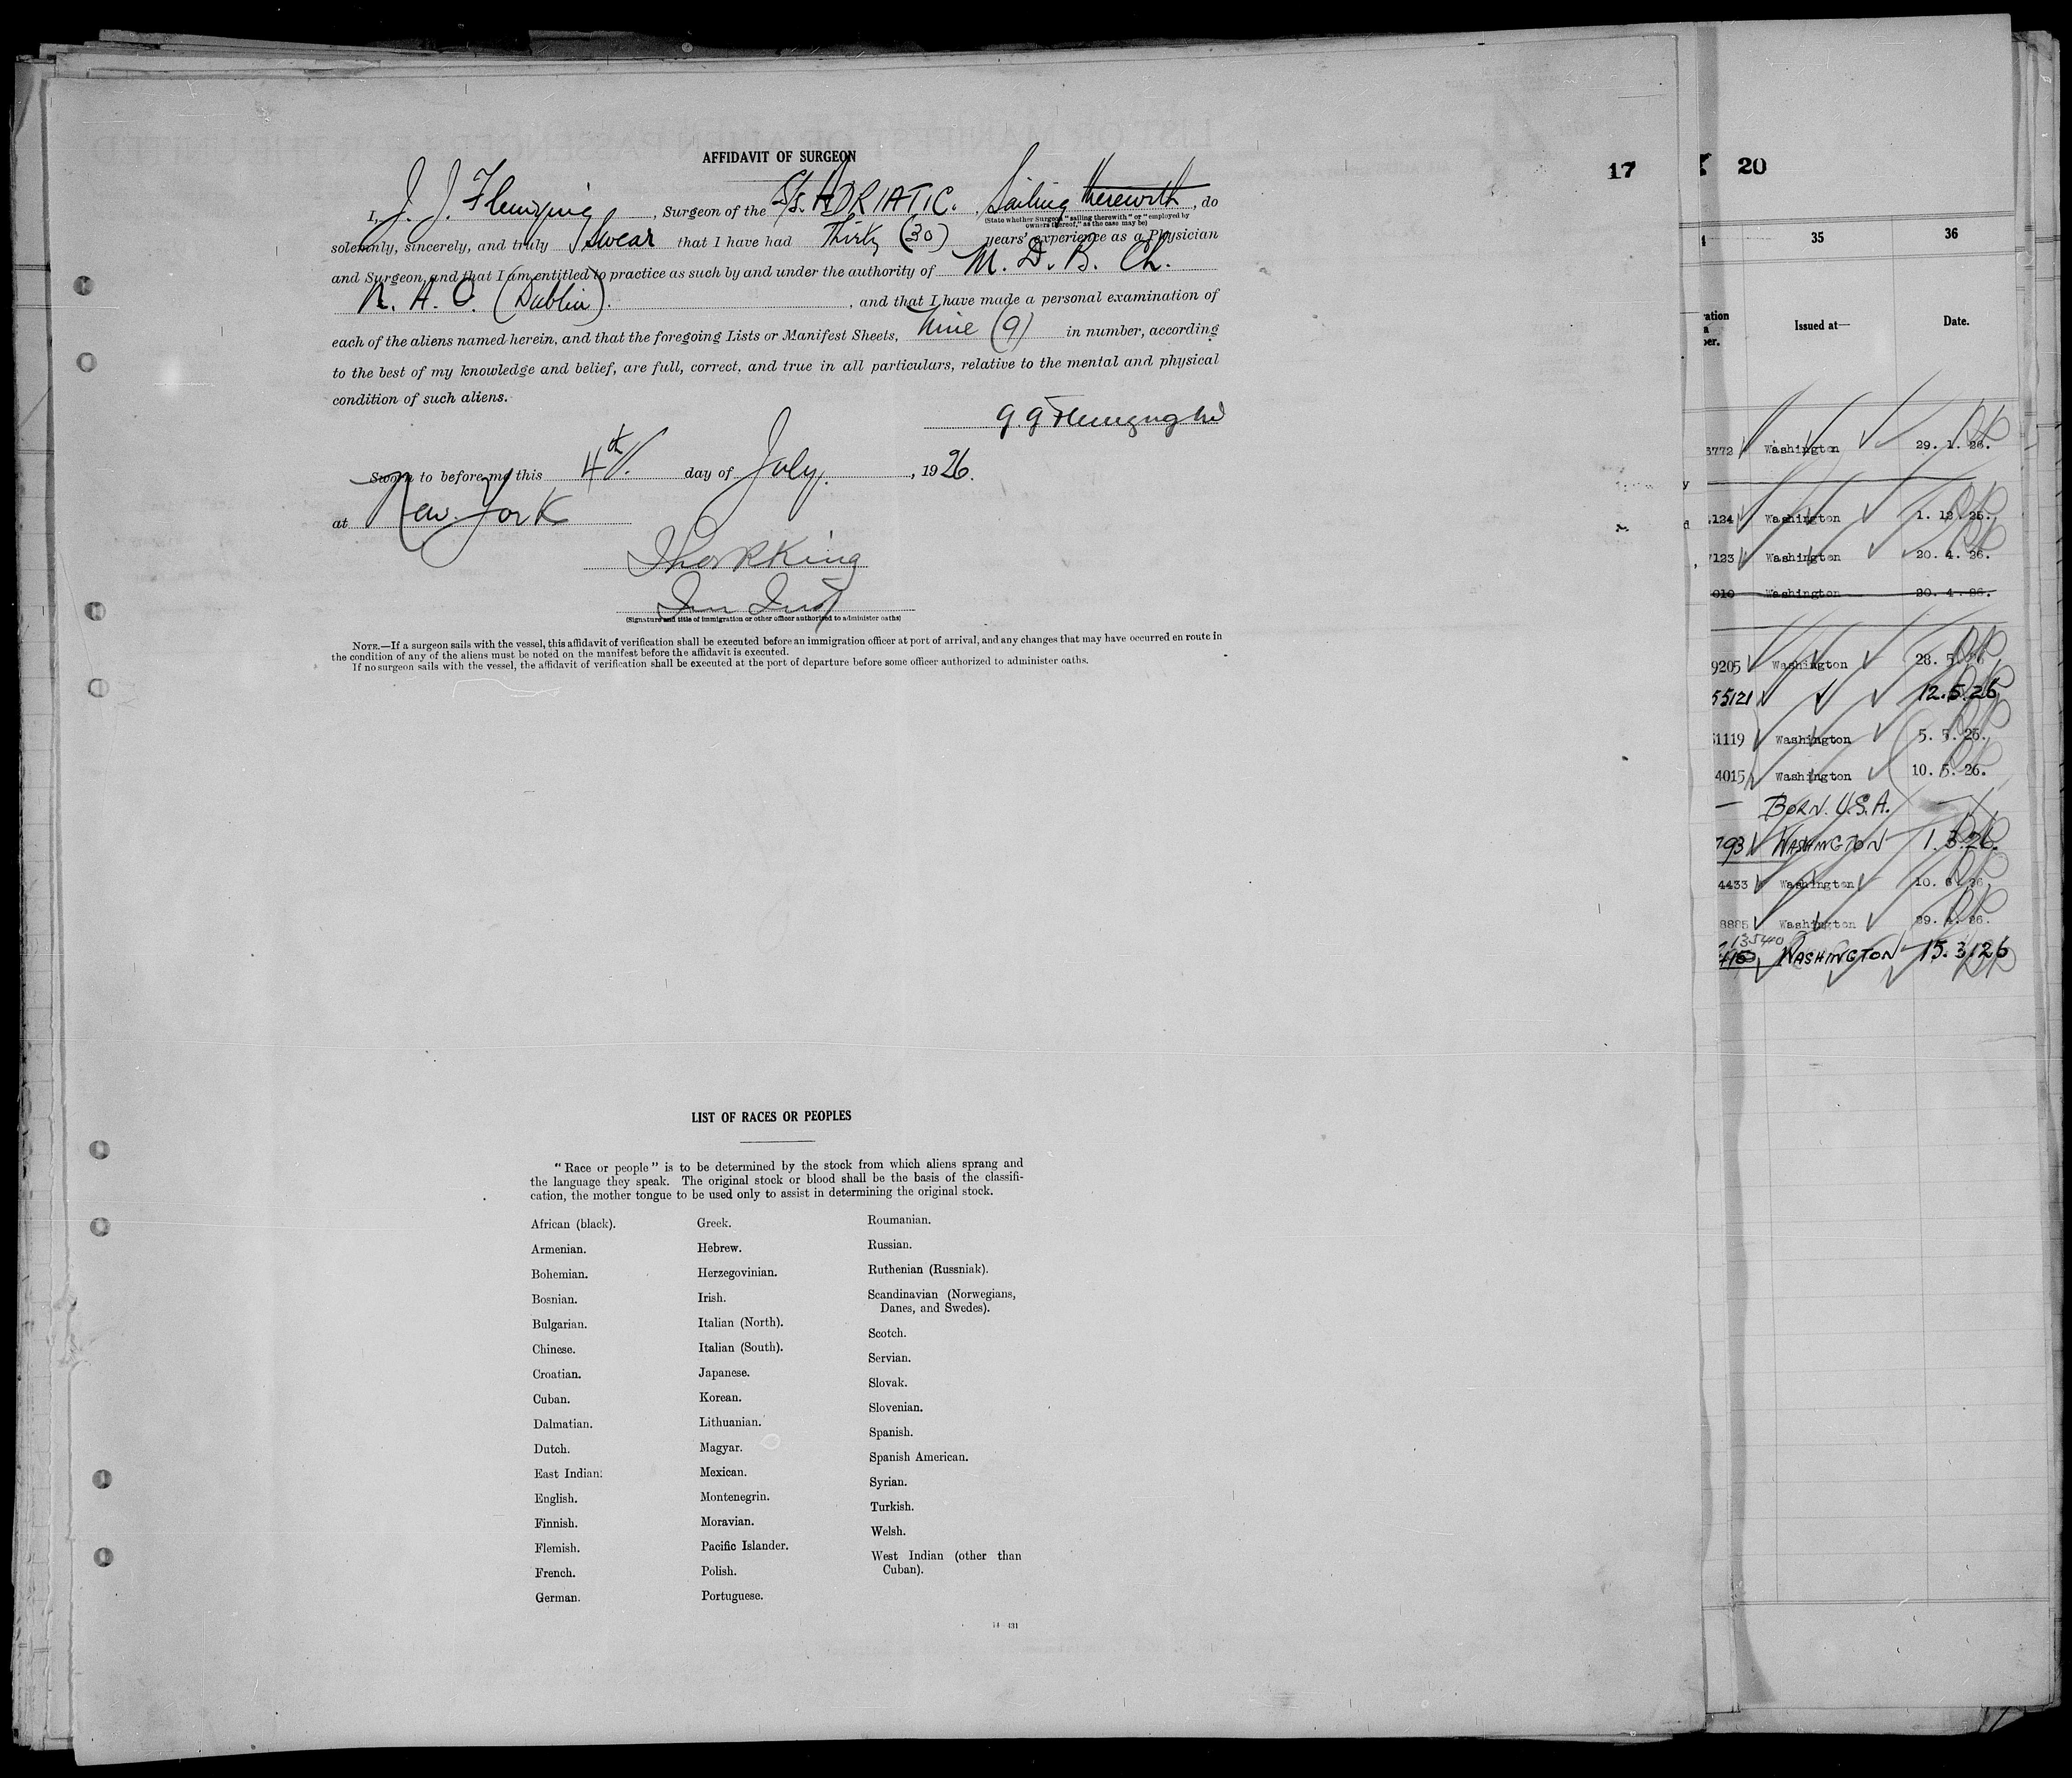 AFFIDAVIT OF SURGEON
I, J. J. Fleming, Surgeon of the S/S. ADRIATIC. , Sailing therewith, do
(State whether Surgeon "sailing therewith" or "employed by
owners thereof," as the case may be)
solemnly, sincerely, and truly swear that I have had Thirty (30) years' experience as a Physician
and Surgeon, and that I am entitled to practice as such by and under the authority of M. D. B. Ch.
(Dublin). , and that I have made a personal examination of
each of the aliens named herein, and that the foregoing Lists or Manifest Sheets, Nine (9) in number, according
to the best of my knowledge and belief, are full, correct, and true in all particulars, relative to the mental and physical
condition of such aliens.
Sworn to before me this 4th. day of July. , 1926.
at New York
King
(Signature and title of immigration or other officer authorized to administer oaths)
NOTE.—If a surgeon sails with the vessel, this affidavit of verification shall be executed before an immigration officer at port of arrival, and any changes that may have occurred en route in
the condition of any of the aliens must be noted on the manifest before the affidavit is executed.
If no surgeon sails with the vessel, the affidavit of verification shall be executed at the port of departure before some officer authorized to administer oaths.
LIST OF RACES OR PEOPLES
"Race or people" is to be determined by the stock from which aliens sprang and
the language they speak. The original stock or blood shall be the basis of the classifi-
cation, the mother tongue to be used only to assist in determining the original stock.
African (black).
Armenian.
Bohemian.
Bosnian.
Bulgarian.
Chinese.
Croatian.
Cuban.
Dalmatian.
Dutch.
East Indian.
English.
Finnish.
Flemish.
French.
German.
Greek.
Hebrew.
Herzegovinian.
Irish.
Italian (North).
Italian (South).
Japanese.
Korean.
Lithuanian.
Magyar.
Mexican.
Montenegrin.
Moravian.
Pacific Islander.
Polish.
Portuguese.
Roumanian.
Russian.
Ruthenian (Russniak).
Scandinavian (Norwegians,
Danes, and Swedes).
Scotch.
Servian.
Slovak.
Slovenian.
Spanish.
Spanish American.
Syrian.
Turkish.
Welsh.
West Indian (other than
Cuban).
17
20
35 36
Issued at— Date.
6772 Washington 29. 1. 26.
124 Washington 1. 12. 25.
7123 Washington 20. 4. 26.
010 Washington 20. 4. 26.
9205 Washington 28. 5. 26
55121 12.5.26
51119 Washington 5. 5. 26.
4015 Washington 10. 5. 26.
— BORN. U.S.A. —
793 WASHINGTON 1. 3. 26.
4433 Washington 10. 6. 26.
8885 Washington 29. 4. 26.
13540
WASHINGTON 15.3.26